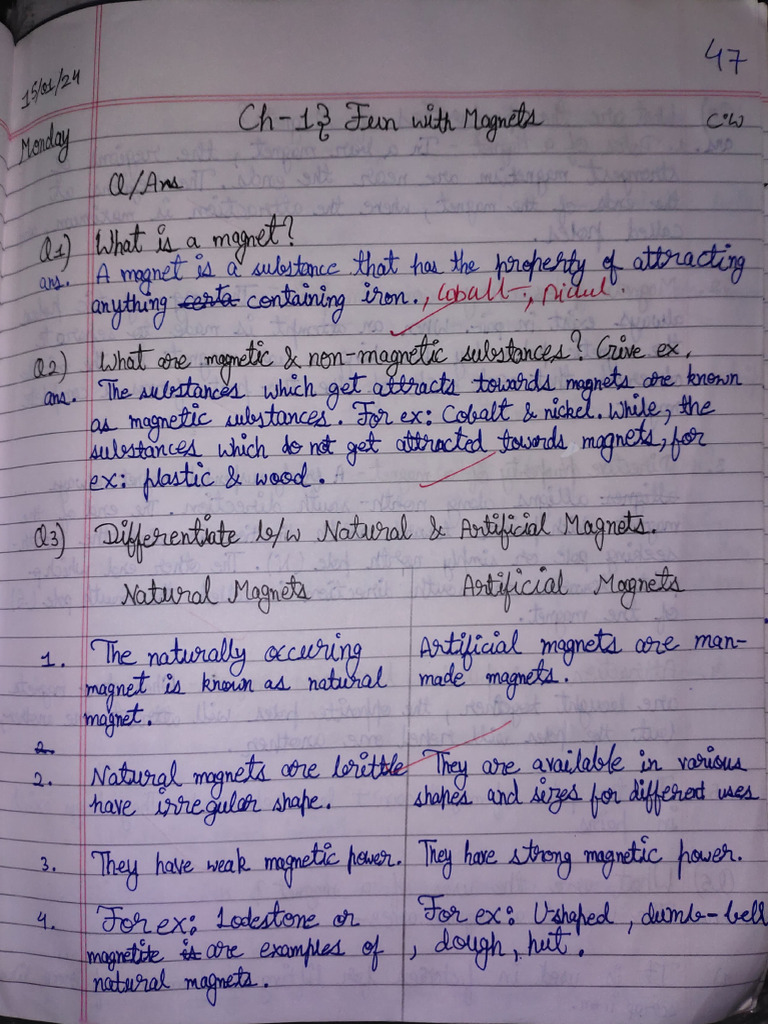 47
15/01/24
Monday
Ch-13 Fun with Magnets
C.W
Q/Ans
Q1) What is a magnet?
ans. A magnet is a substance that has the property of attracting
anything certa containing iron. , Cobalt, nickel.
Q2) What are magnetic & non-magnetic substances? Give ex.
ans. The substances which get attracts towards magnets are known
as magnetic substances. For ex: Cobalt & nickel. While, the
substances which do not get attracted towards magnets, for
ex: plastic & wood.
Q3) Differentiate b/w Natural & Artificial Magnets.
Natural Magnets Artificial Magnets
1. The naturally occuring Artificial magnets are man-
magnet is known as natural made magnets.
magnet.
2.
2. Natural magnets are brittle They are available in various
have irregular shape. shapes and sizes for different uses
3. They have weak magnetic power. They have strong magnetic power.
4. For ex: Lodestone or For ex: U-shaped, dumb-bell
magnetite is are examples of , dough, hut.
natural magnets.